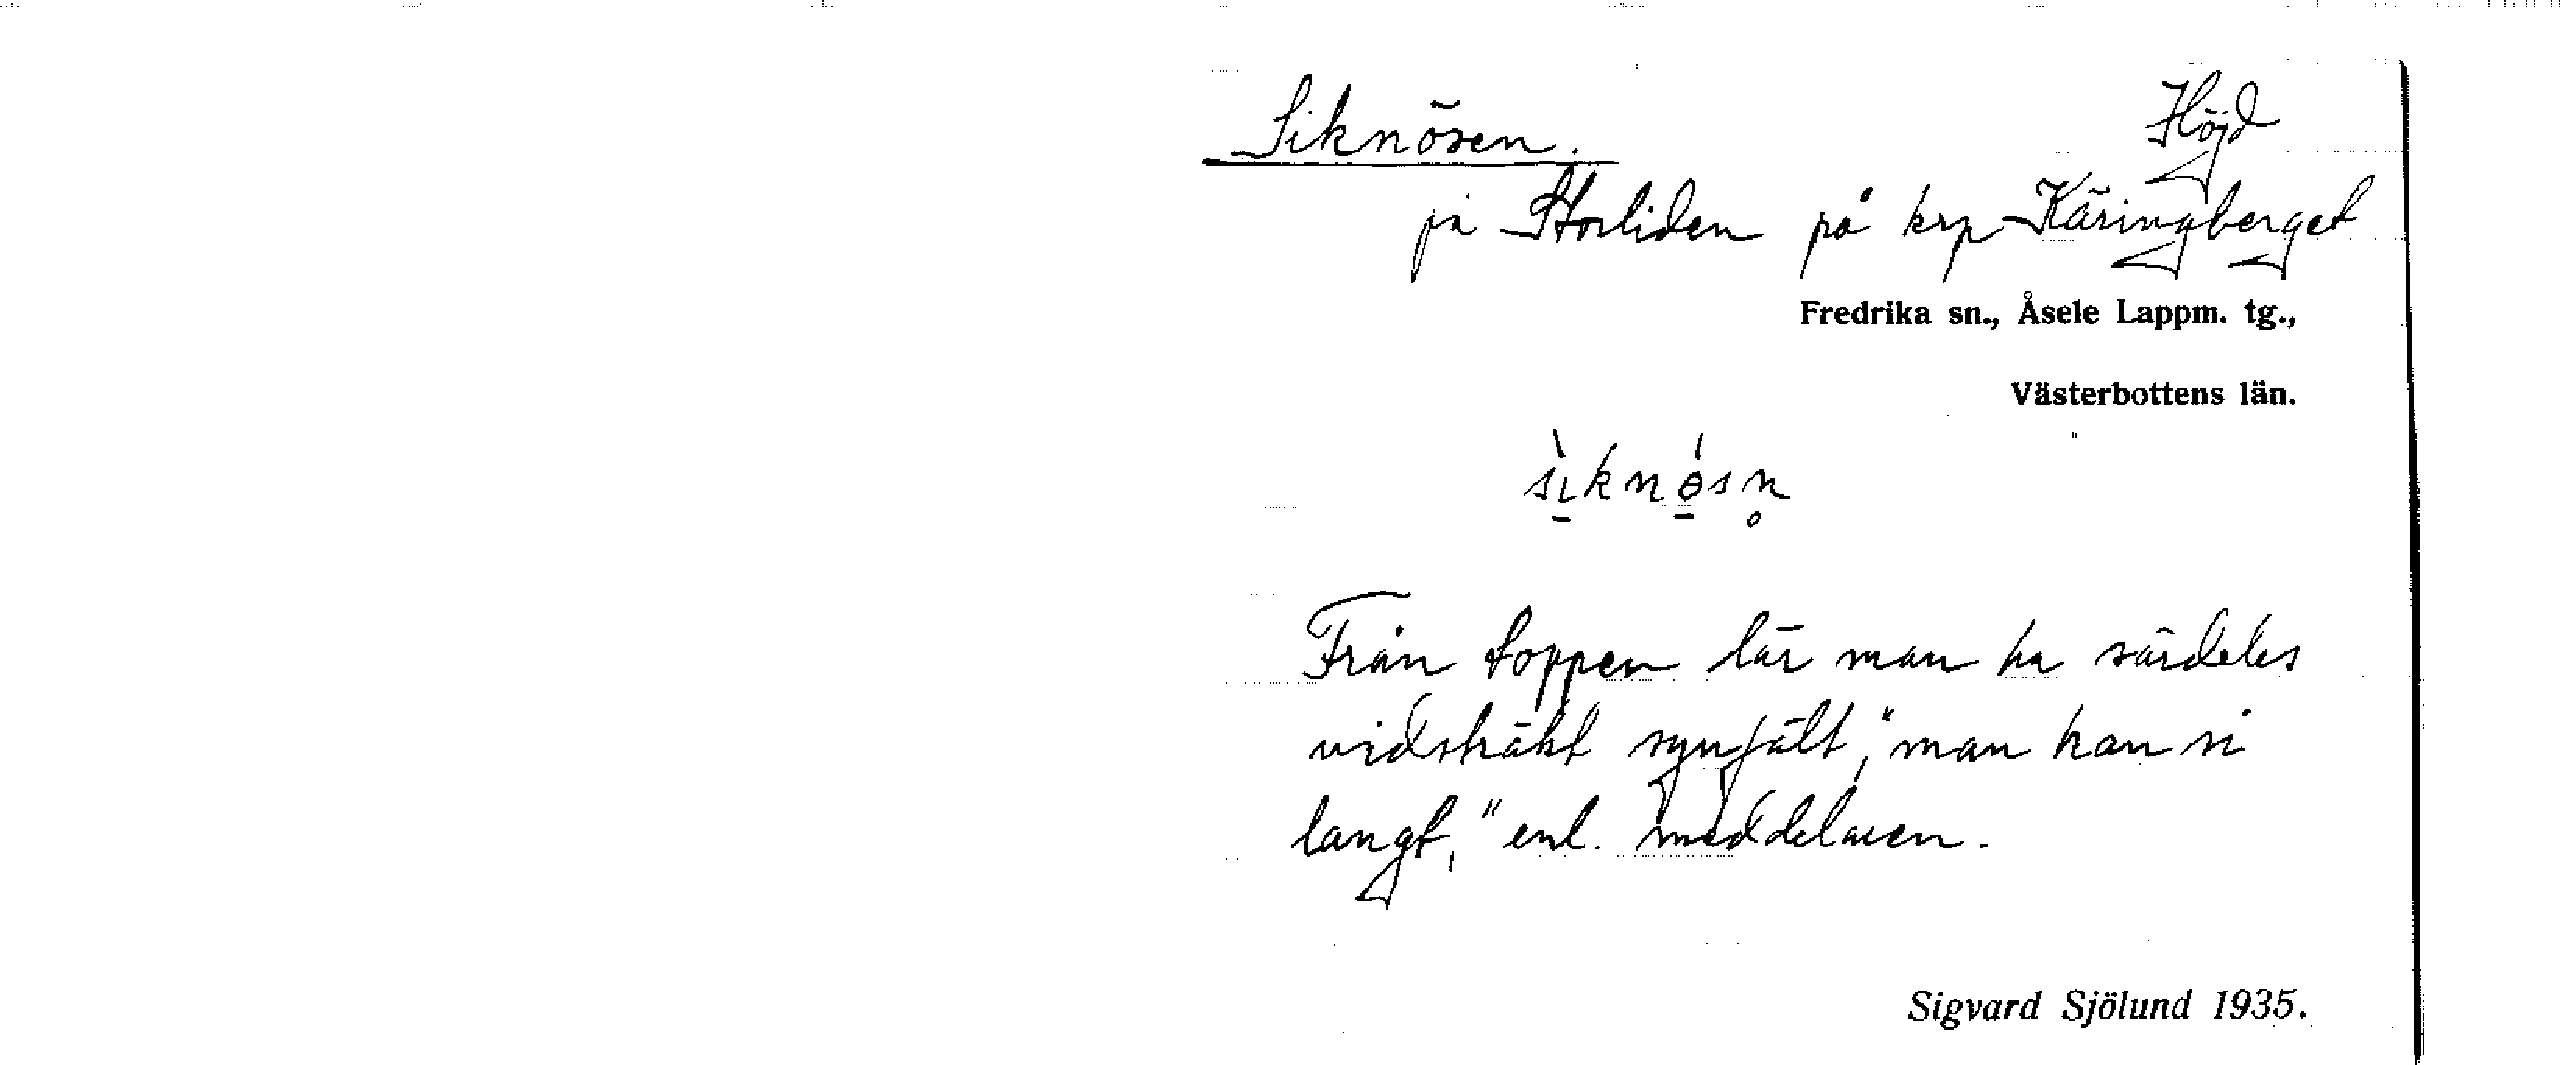 Siknösen. Höjd
på Storliden på krp Käringberget
Fredrika sn., Åsele Lappm. tg.,
Västerbottens län.
sìknósn̥
Från toppen lär man ha särdeles
vidsträkt synfält, "man kan se
långt," enl. meddelaren.
Sigvard Sjölund 1935.